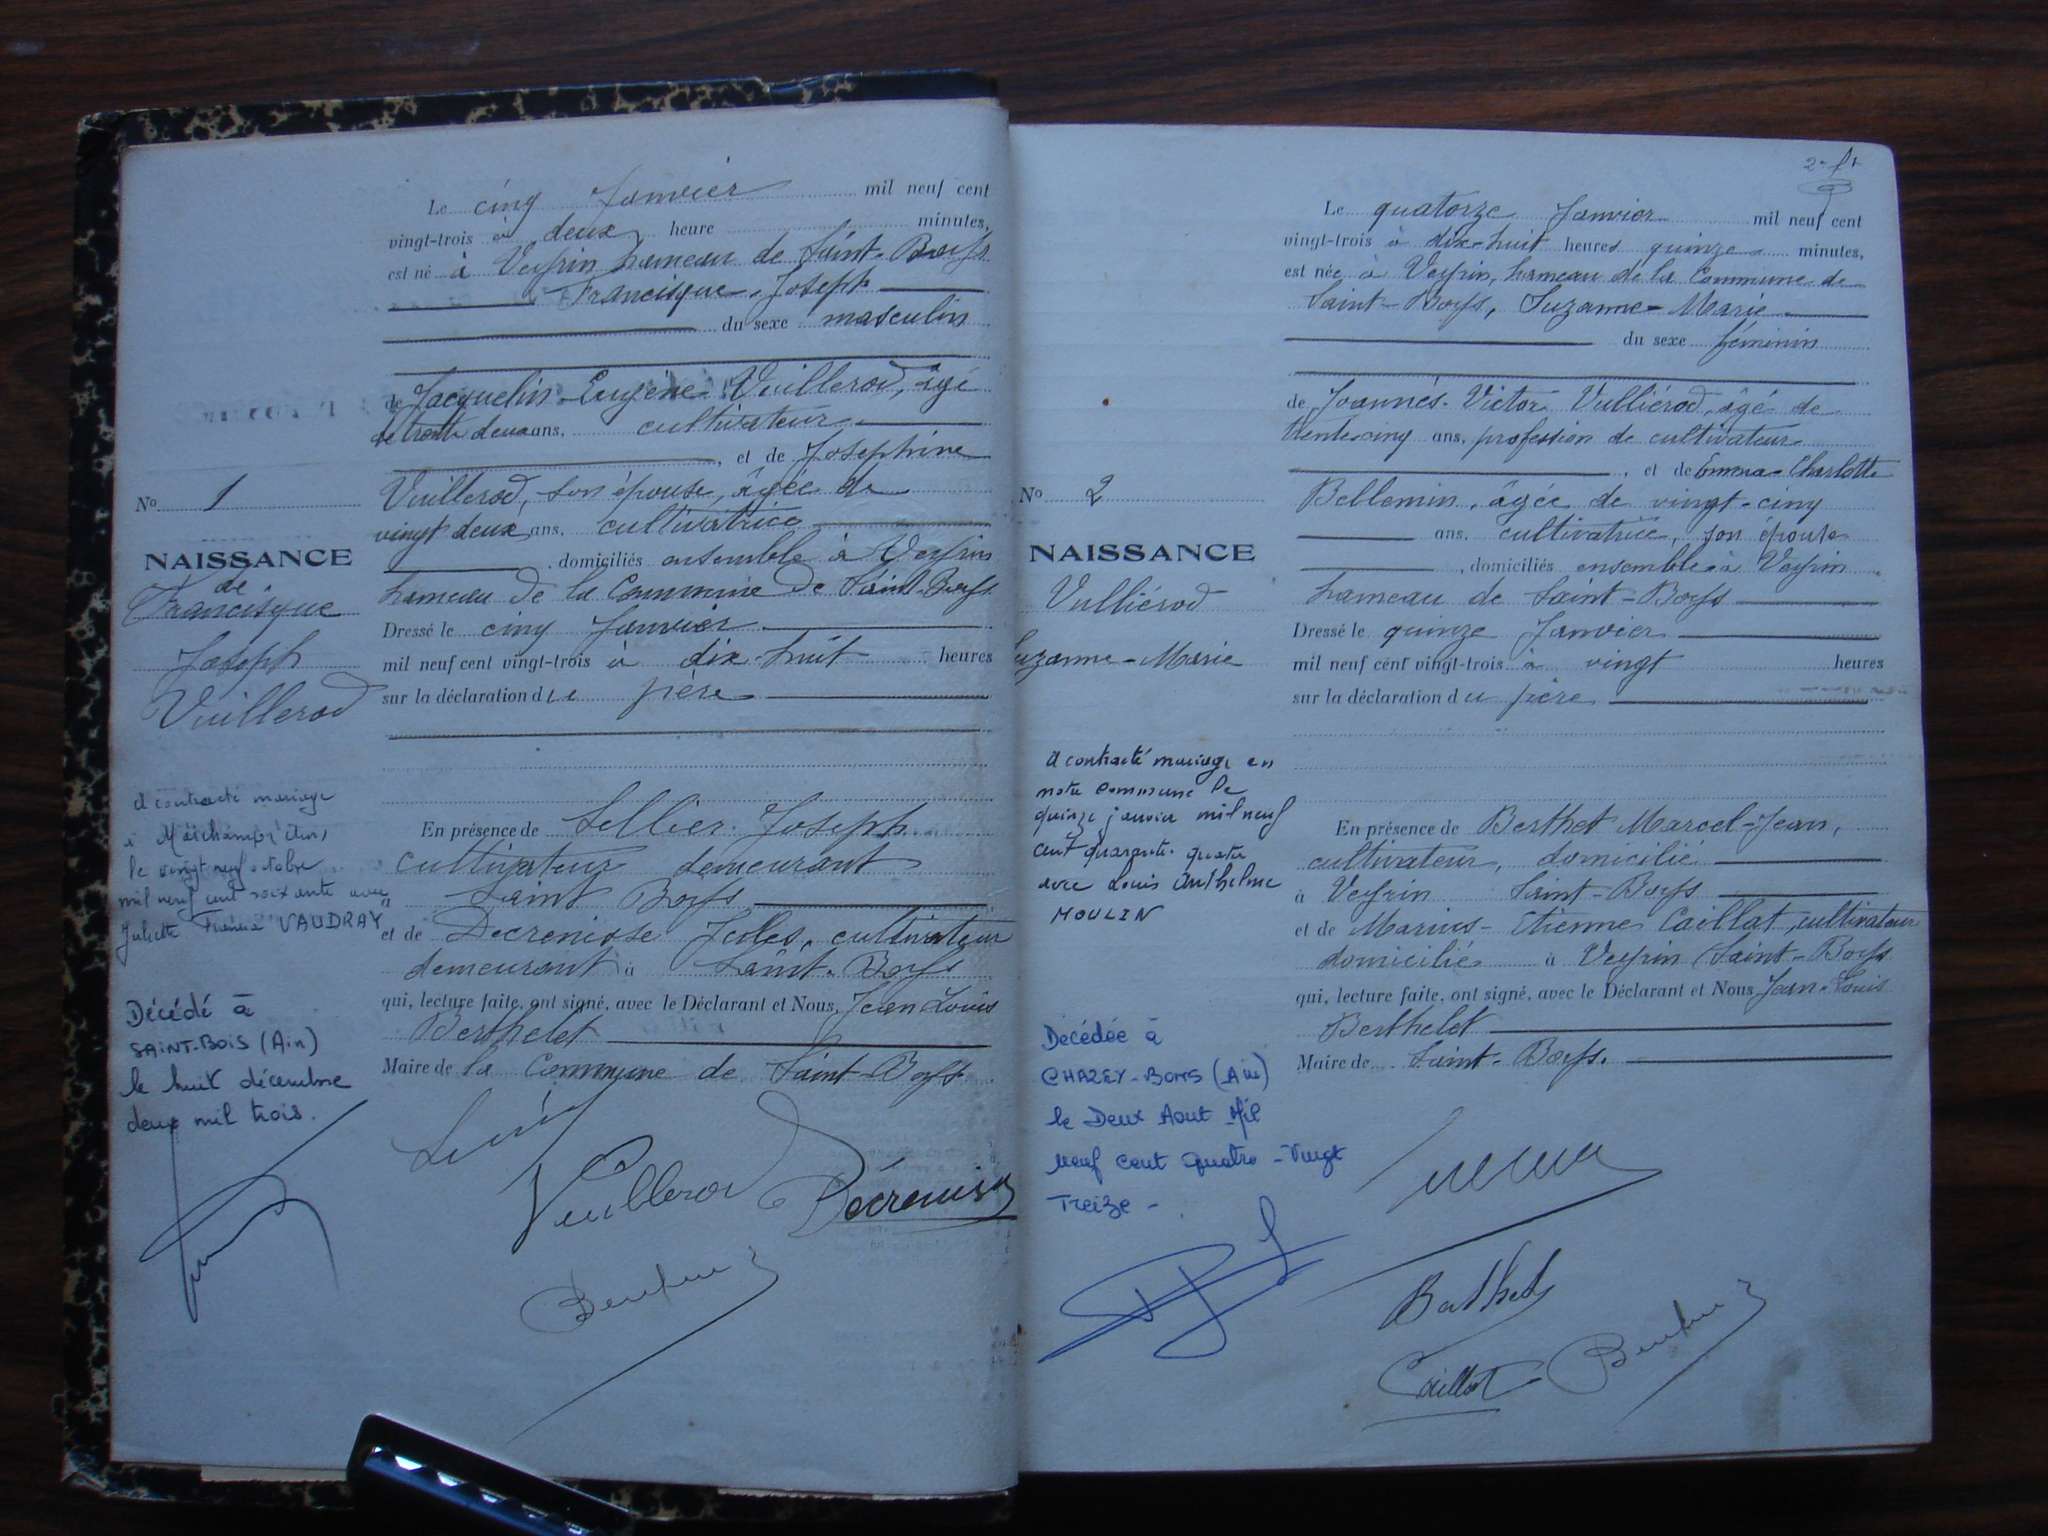 Le cinq Janvier mil neuf cent
vingt-trois à deux heure minutes,
est né à Veyrin hameau de Saint-Boys
Francisque-Joseph
du sexe masculin
de Jacquelin-Eugène Vuillerod, âgé
de trente deux ans, cultivateur
, et de Josephine
Vuillerod, son épouse, âgée de
vingt deux ans, cultivatrice
, domiciliés ensemble à Veyrin
hameau de la Commune de Saint-Boys
Dressé le cinq Janvier
mil neuf cent vingt-trois à dix-huit heures
sur la déclaration du père
En présence de Sellier Joseph
cultivateur demeurant
Saint Boys
et de Decreniose Jules, cultivateur
demeurant à Saint-Boys
qui, lecture faite, ont signé, avec le Déclarant et Nous, Jean Louis
Berthelot
Maire de la Commune de Saint-Boys
Vuillerod
Décrenise
No 1
NAISSANCE
de
Francisque
Joseph
Vuillerod
A contracté mariage
à (Ain)
le vingt neuf octobre
mil neuf cent soixante avec
Juliette VAUDRAY
Décédé à
SAINT-BOIS (Ain)
le huit décembre
deux mil trois.
Le quatorze Janvier mil neuf cent
vingt-trois à dix-huit heures quinze minutes,
est née à Veyrin, hameau de la Commune de
Saint-Boys, Suzanne-Marie
du sexe féminin
de Joannés-Victor Vulliérod, âgé de
trente-cinq ans, profession de cultivateur
, et de Emma-Charlotte
Bellemin, âgée de vingt-cinq
ans, cultivatrice, son épouse
, domiciliés ensemble à Veyrin
hameau de Saint-Boys
Dressé le quinze Janvier
mil neuf cent vingt-trois à vingt heures
sur la déclaration du père
En présence de Berthet Marcel-Jean,
cultivateur, domicilié
à Veyrin Saint-Boys
et de Marius-Etienne Caillat, cultivateur
domicilié à Veyrin Saint-Boys
qui, lecture faite, ont signé, avec le Déclarant et Nous Jean-Louis
Berthelot
Maire de Saint-Boys.
Berthet
Caillat
No 2
NAISSANCE
Vulliérod
Suzanne-Marie
A contracté mariage en
notre commune le
quinze janvier mil neuf
cent quarante-quatre
avec Louis Anthelme
MOULIN
Décédée à
CHAZEY-BONS (Ain)
le Deux Aout Mil
neuf cent quatre-Vingt
Treize -